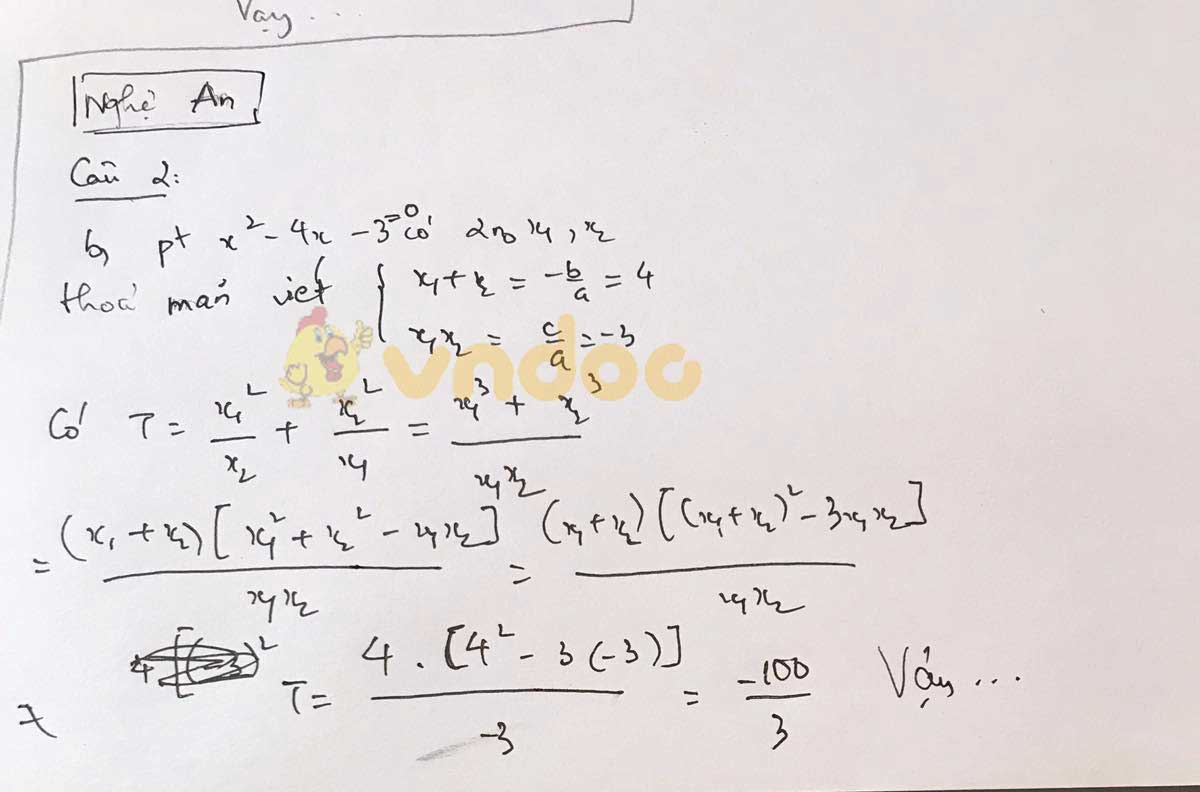 Vạy...
Nghệ An
Câu 2:
b, pt x² - 4x - 3 = 0 có 2no x₁, x₂
thoả mãn viet { x₁ + x₂ = -b/a = 4
x₁x₂ = c/a = -3
vndoc
Có T = x₁²/x₂ + x₂²/x₁ = (x₁³ + x₂³)/(x₁x₂)
= (x₁ + x₂)[x₁² + x₂² - x₁x₂]/(x₁x₂) = (x₁ + x₂)[(x₁ + x₂)² - 3x₁x₂]/(x₁x₂)
T = 4 . [4² - 3(-3)]/-3 = -100/3 Vậy...